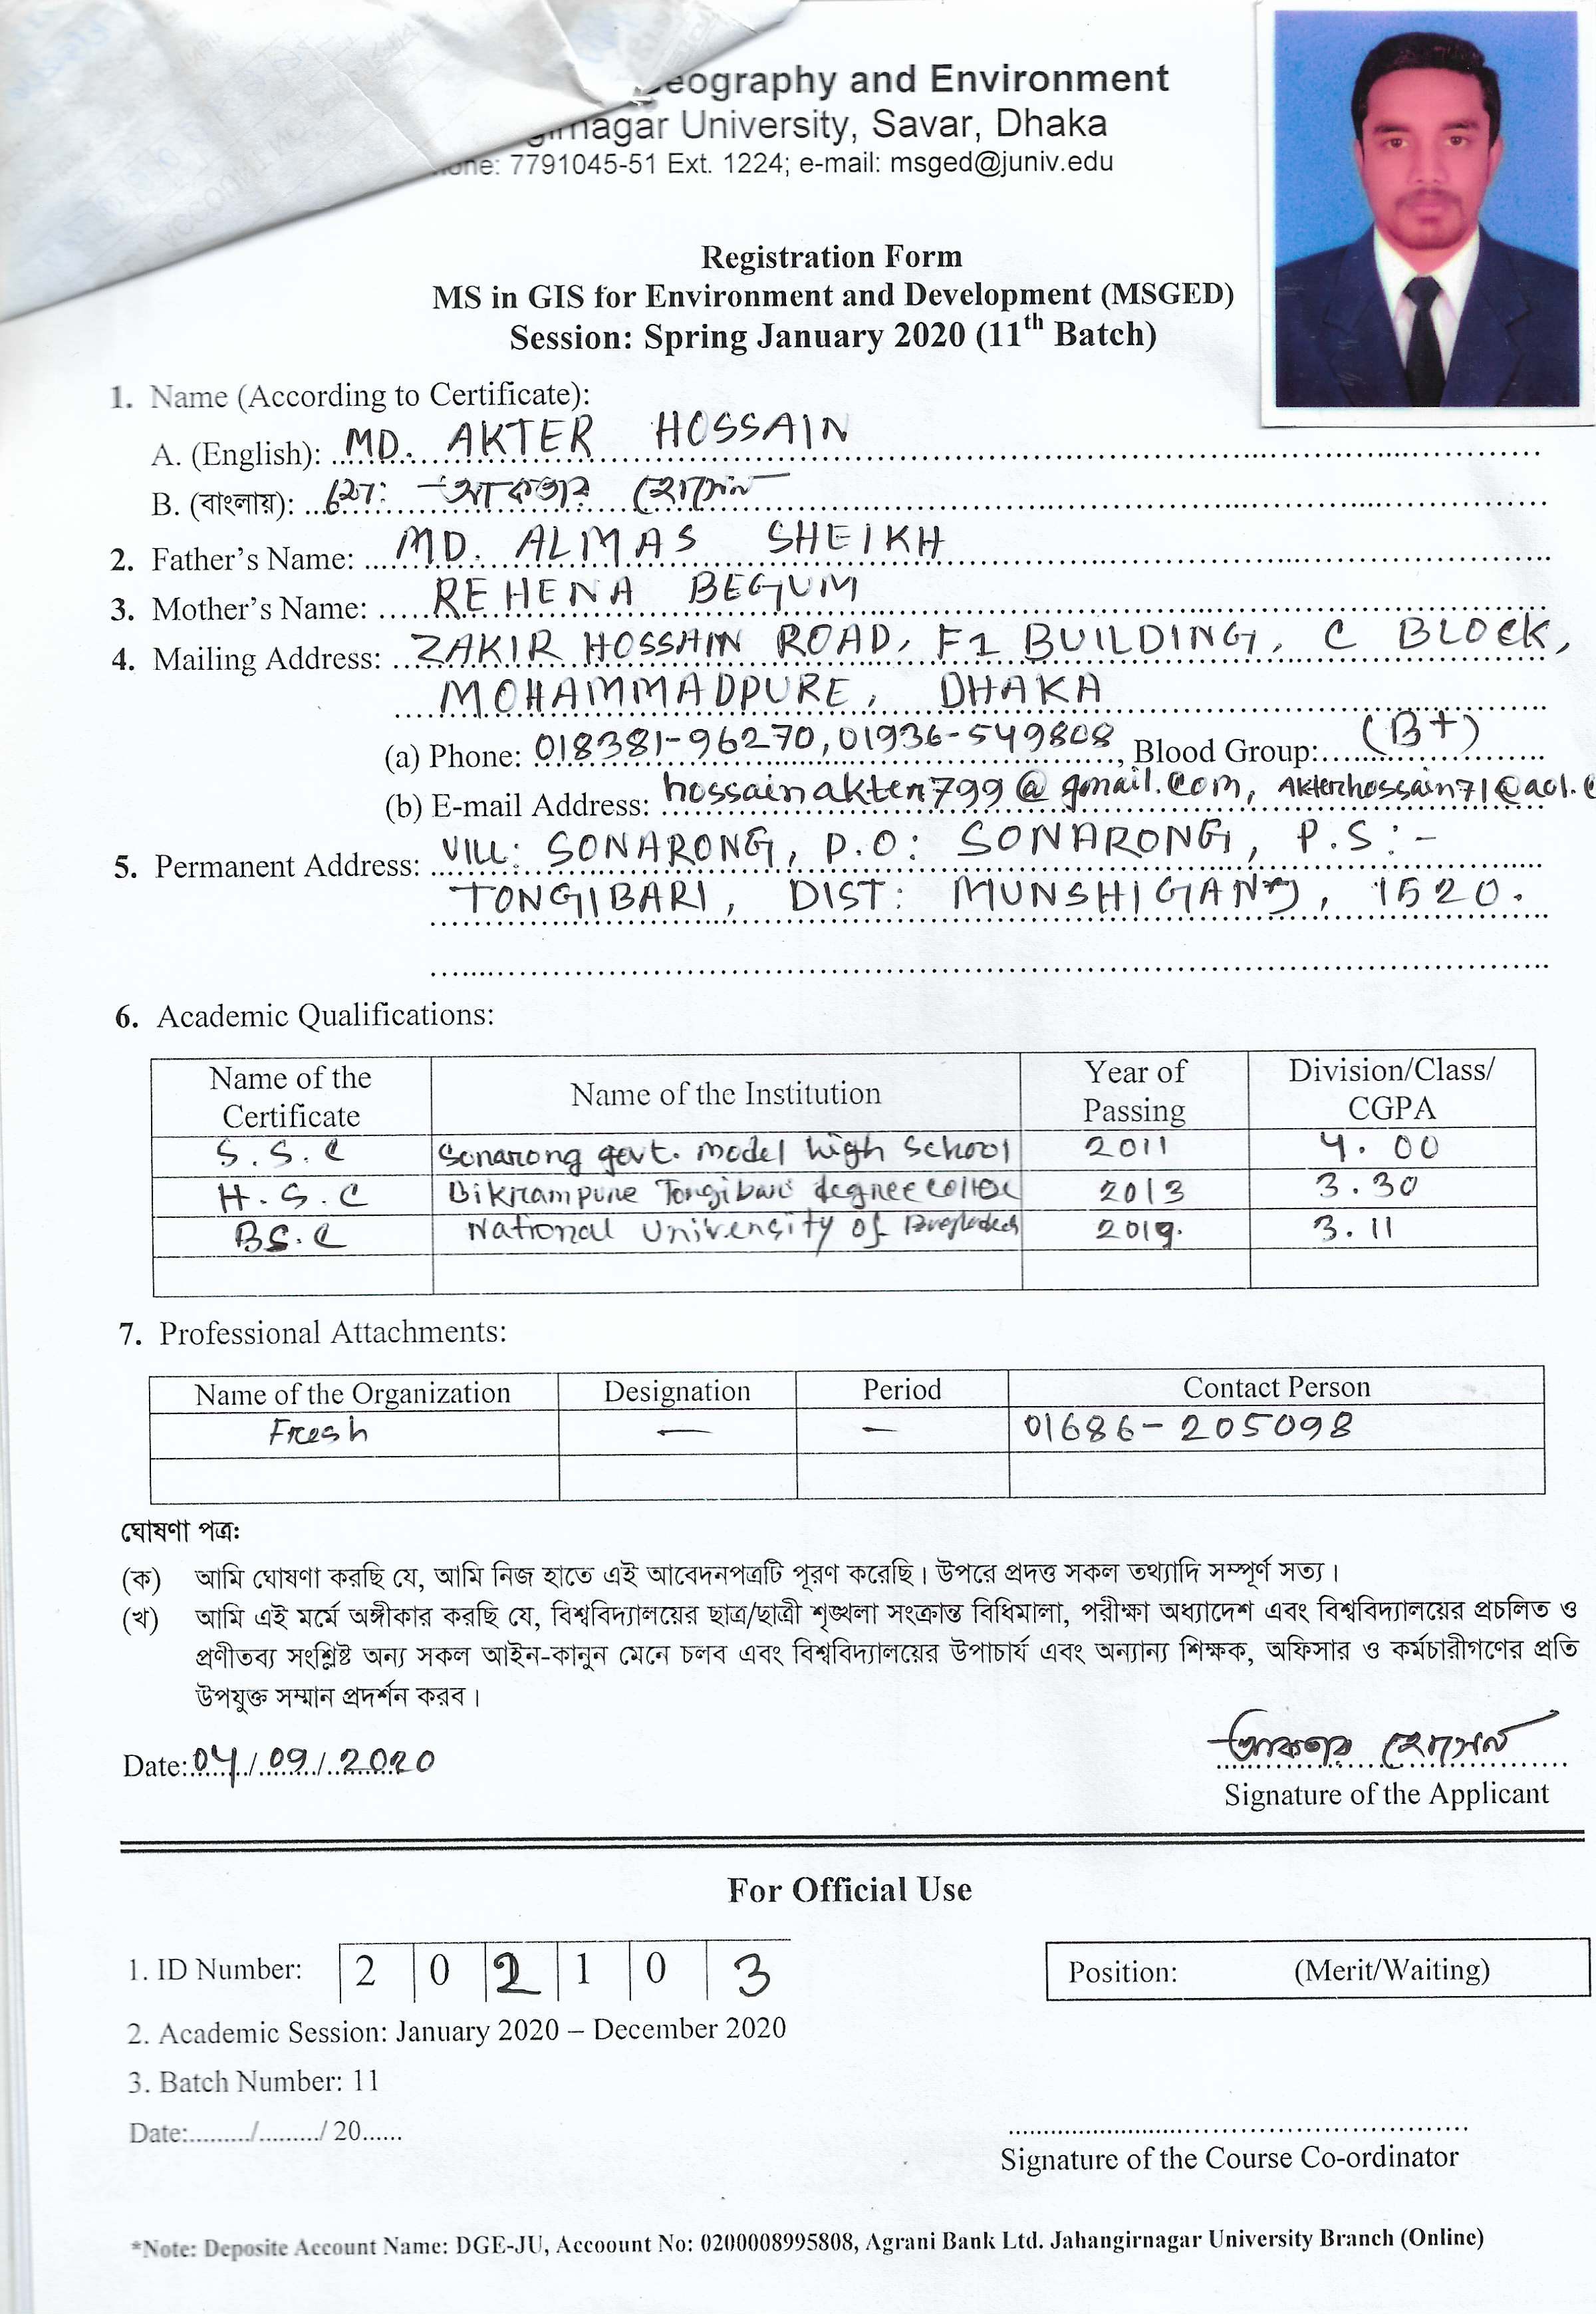 eography and Environment
nagar University, Savar, Dhaka
one: 7791045-51 Ext. 1224; e-mail: msged@juniv.edu
Registration Form
MS in GIS for Environment and Development (MSGED)
Session: Spring January 2020 (11th Batch)
1. Name (According to Certificate):
A. (English): MD. AKTER HOSSAIN
B. (বাংলায়): মো: আকতার হোসেন
2. Father's Name: MD. ALMAS SHEIKH
3. Mother's Name: REHENA BEGUM
4. Mailing Address: ZAKIR HOSSAIN ROAD, F1 BUILDING, C BLOCK,
MOHAMMADPURE, DHAKA
(a) Phone: 018381-96270, 01936-549808, Blood Group: (B+)
(b) E-mail Address: hossainakter799@gmail.com, Akterhossain71@aol.c
5. Permanent Address: VILL: SONARONG, P.O: SONARONG, P.S:-
TONGIBARI, DIST: MUNSHIGANJ, 1520.
6. Academic Qualifications:
Name of the Certificate Name of the Institution Year of Passing Division/Class/CGPA
S.S.C Sonarong govt. model high school 2011 4.00
H.S.C Bikrampure Tongibari degree 2013 3.30
BS.C National University of Bangladesh 2019. 3.11
7. Professional Attachments:
Name of the Organization Designation Period Contact Person
Fresh — — 01686-205098
ঘোষণা পত্র:
(ক) আমি ঘোষণা করছি যে, আমি নিজ হাতে এই আবেদনপত্রটি পূরণ করেছি। উপরে প্রদত্ত সকল তথ্যাদি সম্পূর্ণ সত্য।
(খ) আমি এই মর্মে অঙ্গীকার করছি যে, বিশ্ববিদ্যালয়ের ছাত্র/ছাত্রী শৃঙ্খলা সংক্রান্ত বিধিমালা, পরীক্ষা অধ্যাদেশ এবং বিশ্ববিদ্যালয়ের প্রচলিত ও
প্রণীতব্য সংশ্লিষ্ট অন্য সকল আইন-কানুন মেনে চলব এবং বিশ্ববিদ্যালয়ের উপাচার্য এবং অন্যান্য শিক্ষক, অফিসার ও কর্মচারীগণের প্রতি
উপযুক্ত সম্মান প্রদর্শন করব।
Date: 04/09/2020 আকতার হোসেন
Signature of the Applicant
For Official Use
1. ID Number: 2 0 2 1 0 3 Position: (Merit/Waiting)
2. Academic Session: January 2020 – December 2020
3. Batch Number: 11
Date:........./........./ 20......
Signature of the Course Co-ordinator
*Note: Deposite Account Name: DGE-JU, Accoount No: 0200008995808, Agrani Bank Ltd. Jahangirnagar University Branch (Online)